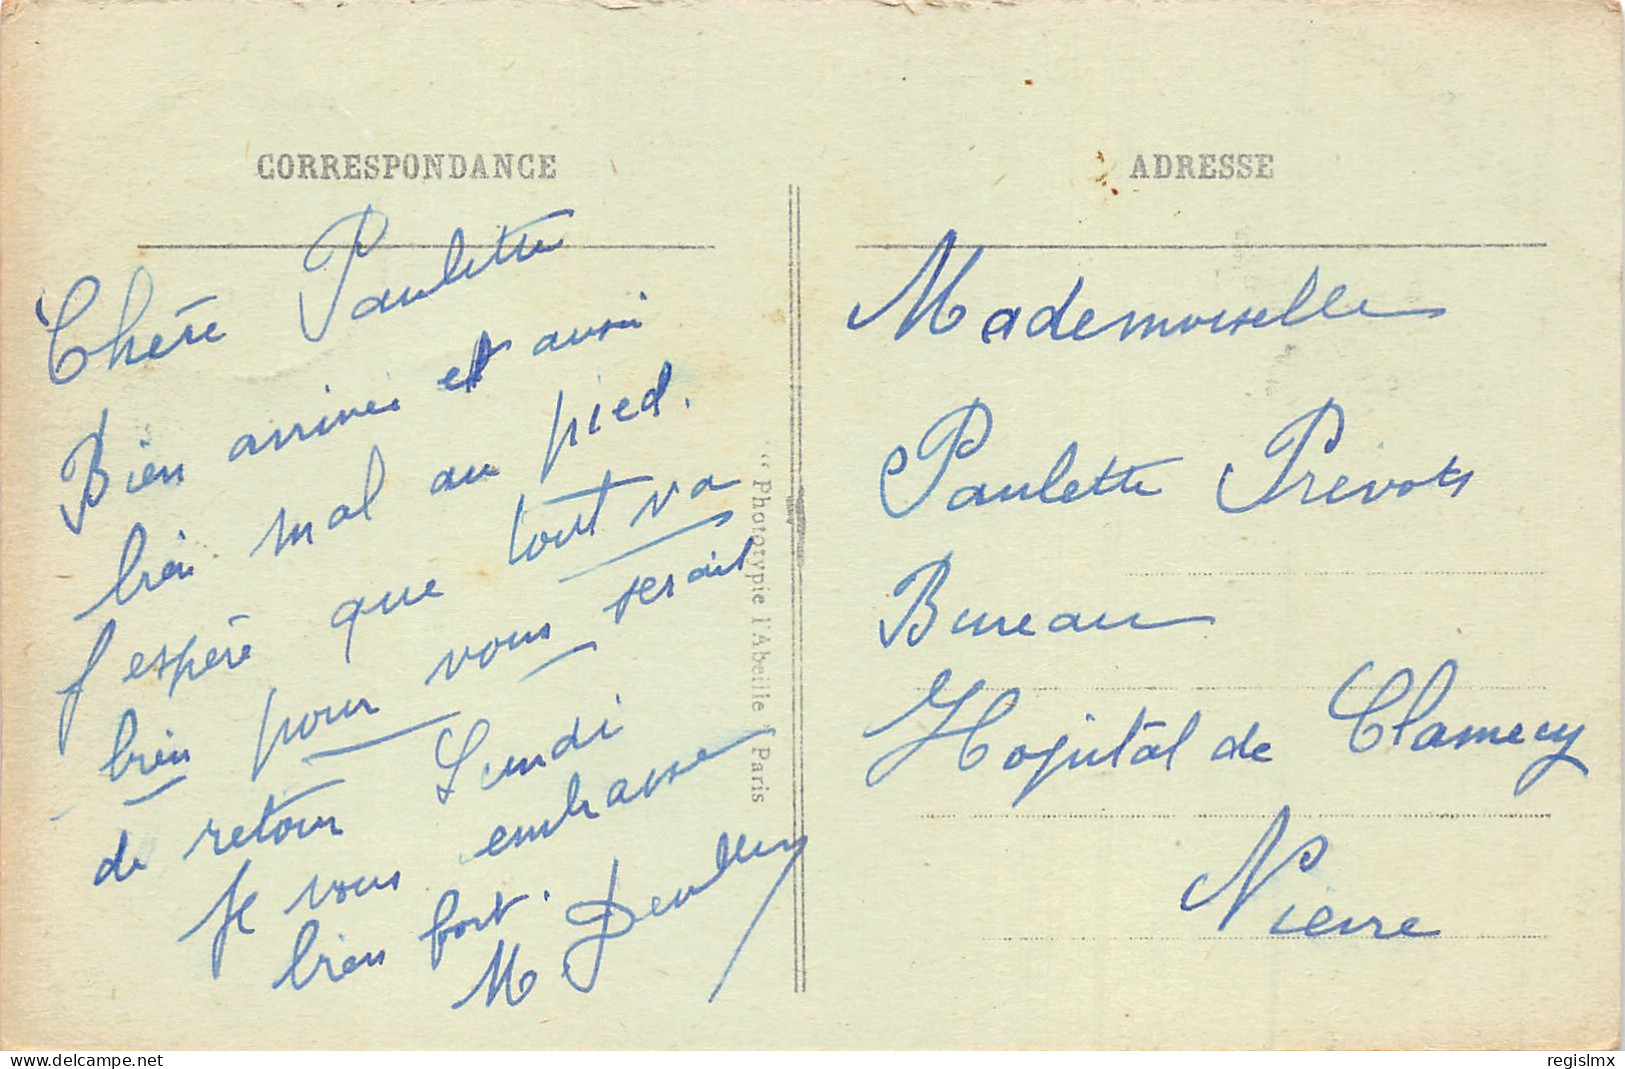 CORRESPONDANCE
Chère Paulette
Bien arrivée et aussi
bien mal au pied.
J'espère que tout va
bien pour vous serait
de retour Lundi
Je vous embrasse
bien fort.
M.
"Phototypie l'Abeille" Paris
ADRESSE
Mademoiselle
Paulette Prévots
Bureau
Hopital de Clamecy
Nievre
delcampe.net
regislmx